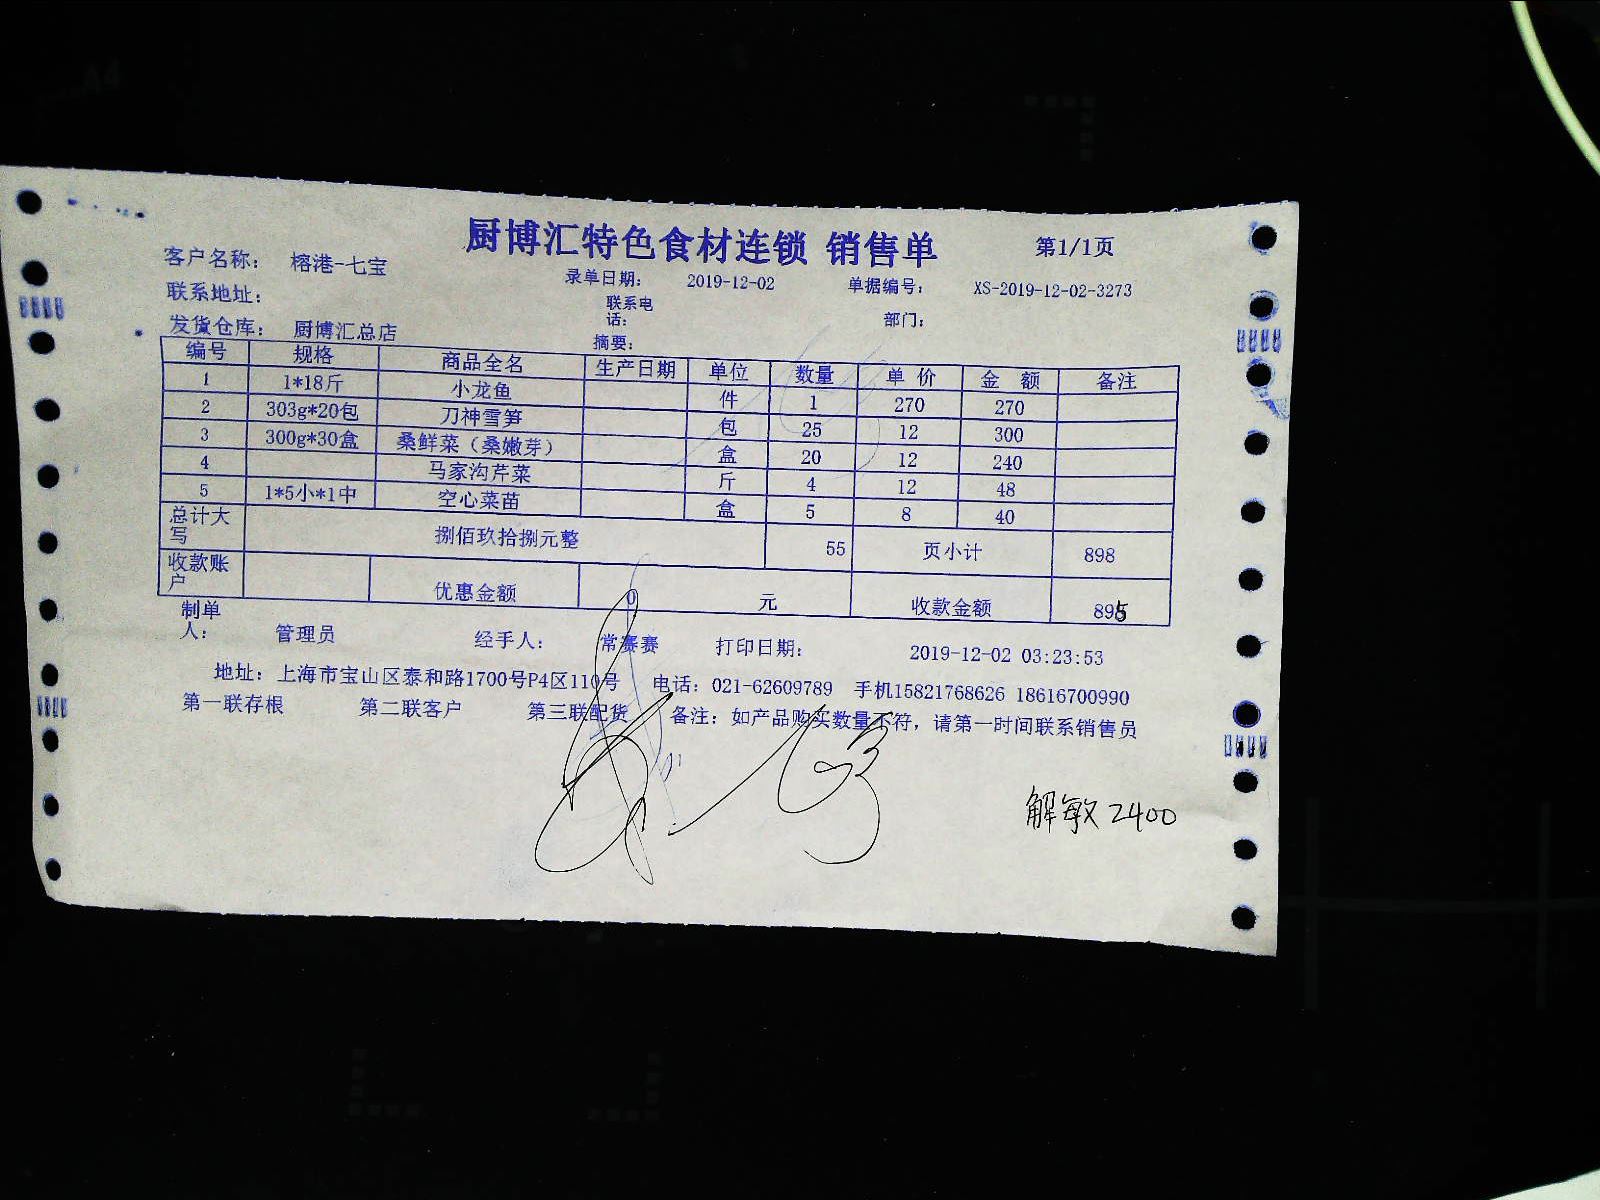 厨博汇特色食材连锁 销售单 第1/1页
客户名称： 榕港-七宝 录单日期： 2019-12-02 单据编号： XS-2019-12-02-3273
联系地址： 联系电话： 部门：
发货仓库： 厨博汇总店 摘要：
编号 规格 商品全名 生产日期 单位 数量 单 价 金 额 备注
1 1*18斤 小龙鱼 件 1 270 270
2 303g*20包 刀神雪笋 包 25 12 300
3 300g*30盒 桑鲜菜（桑嫩芽） 盒 20 12 240
4 马家沟芹菜 斤 4 12 48
5 1*5小*1中 空心菜苗 盒 5 8 40
总计大写 捌佰玖拾捌元整 55 页小计 898
收款账户 优惠金额 0 元 收款金额 895
制单人： 管理员 经手人： 常赛赛 打印日期： 2019-12-02 03:23:53
地址：上海市宝山区泰和路1700号P4区110号 电话：021-62609789 手机15821768626 18616700990
第一联存根 第二联客户 第三联配货 备注：如产品购买数量不符，请第一时间联系销售员
解敏 2400